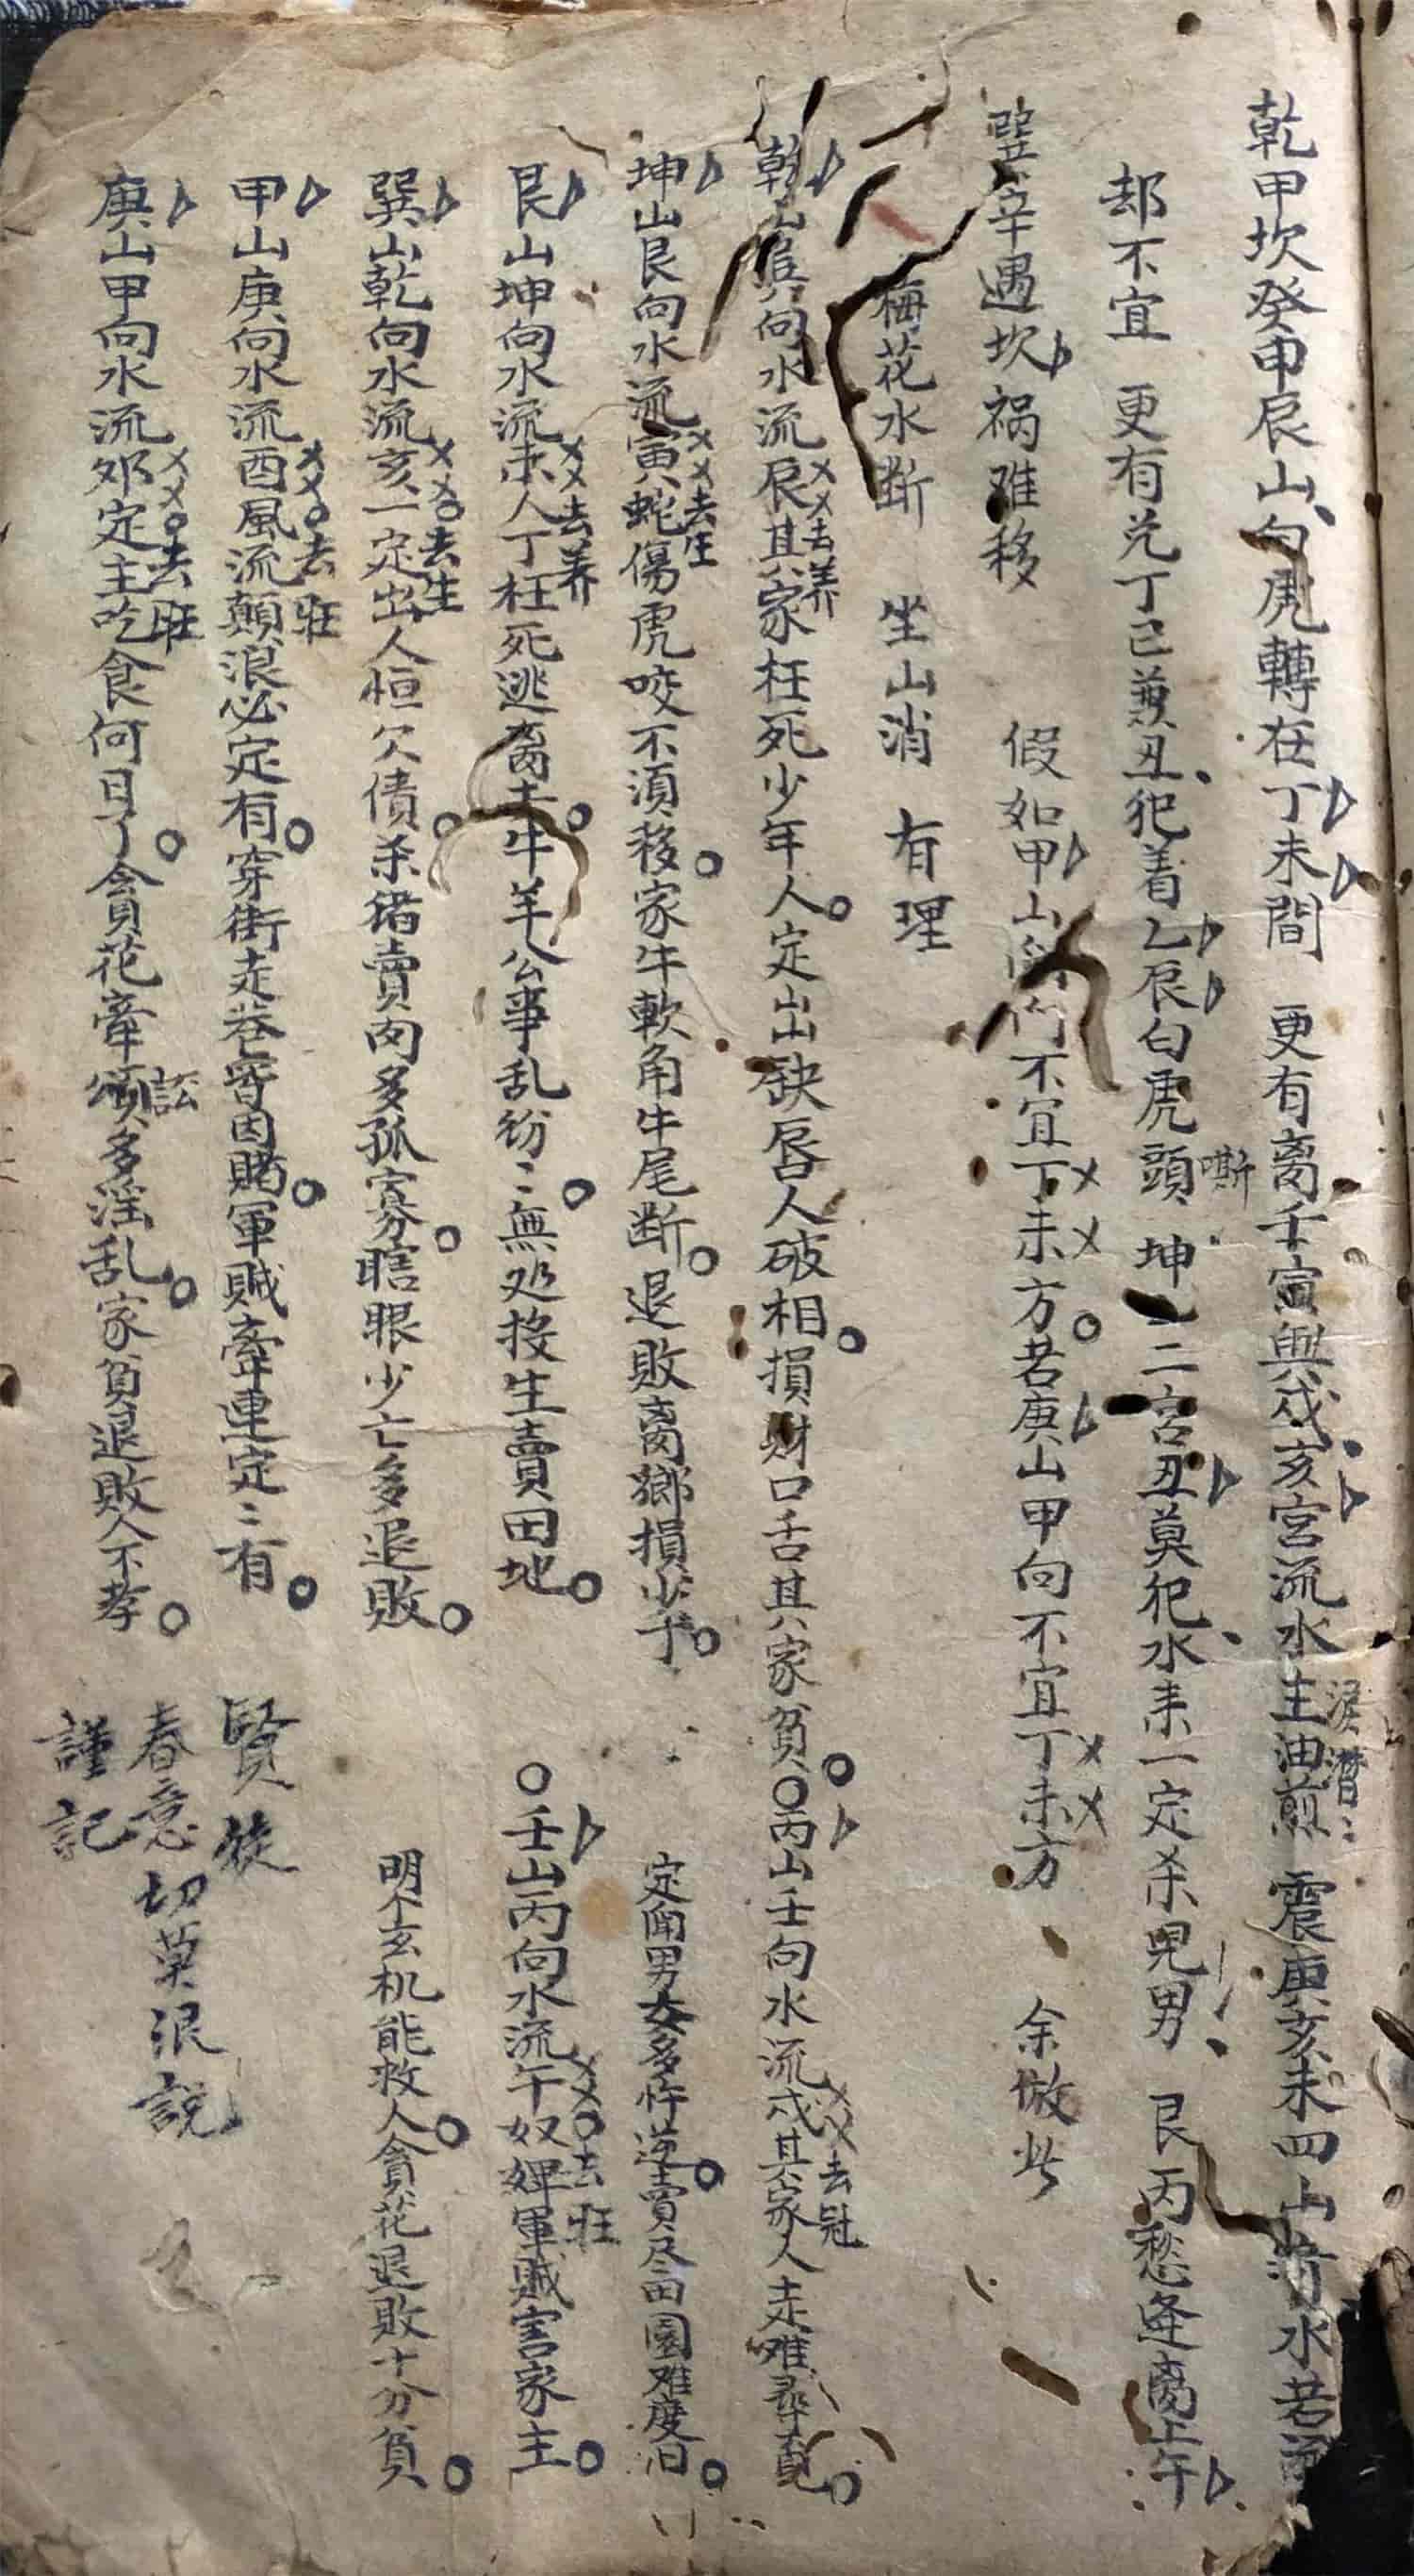 乾甲坎癸申辰山白虎轉在丁未間 更有离壬寅與戌亥宮流水主油煎 震庚亥未四山 水若
泪潜〻
却不宜 更有兑丁巳兼丑犯着乙辰白虎頭 坤乙二宮丑莫犯水来一定杀児男 艮丙愁逢离上午
嘶
巽辛遇坎祸难移 假如甲山 门不宜丁未方若庚山甲向不宜丁未方 余倣此
梅花水断 坐山消 有理
乾山巽向水流辰其家枉死少年人定出缺唇人破相損财口舌其家貧
去养
丙山壬向水流戌其家人走难尋覓
去冠
坤山艮向水流寅蛇傷虎咬不須移家牛軟角牛尾断退敗离鄉損少子
去生
定闻男女多忤逆賣尽田園难度日
艮山坤向水流未人丁枉死逃离去牛羊公事乱纷〻無处投生賣田地
去养
壬山丙向水流午奴婢軍贼害家主
去旺
巽山乾向水流亥一定出人恒欠债杀猪賣肉多孤寡瞎眼少亡多退敗
去生
明个玄机能救人貪花退敗十分貧
甲山庚向水流酉風流顛浪必定有穿街走巷皆因賭軍贼牽連定〻有
去旺
庚山甲向水流夘定主吃食何日了貪花牽頌多淫乱家貧退敗人不孝
去旺
訟
賢徒
春意切莫浪説
謹記